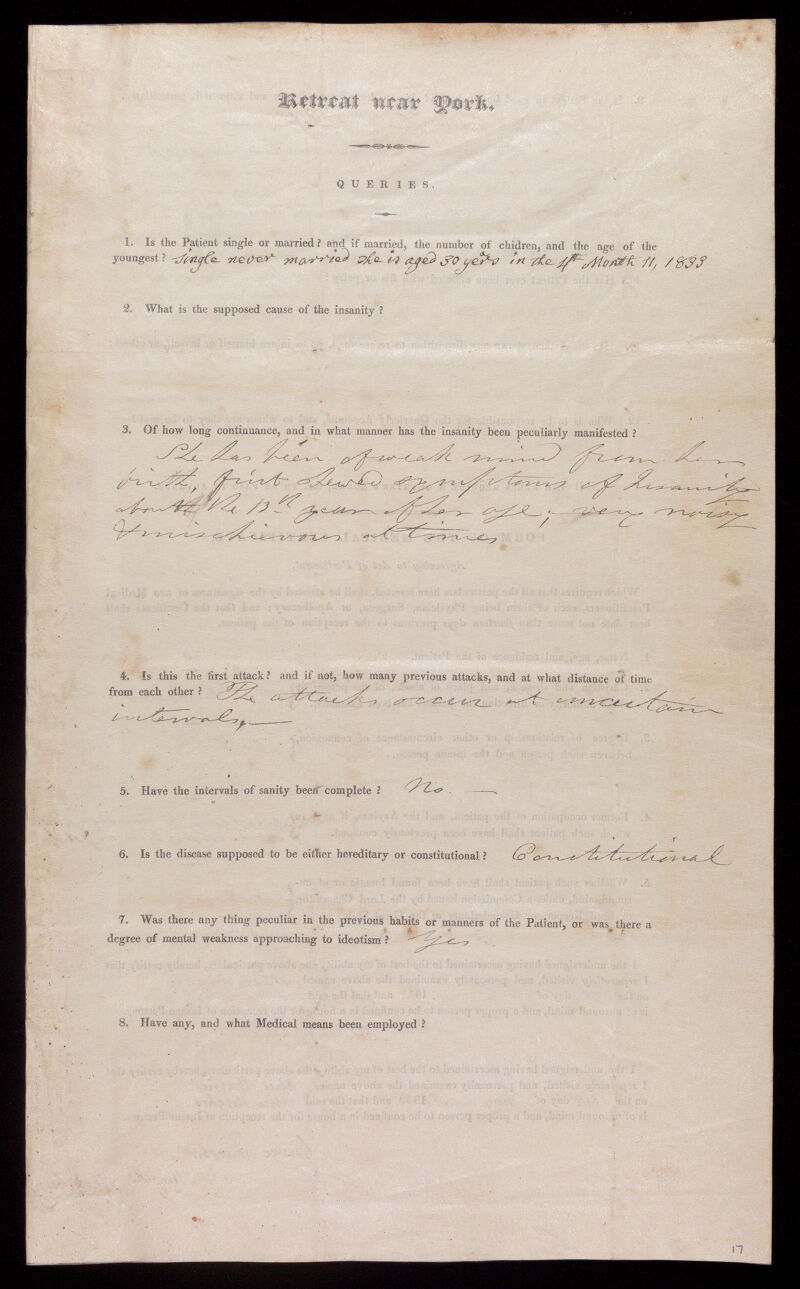 Retreat near York.
QUERIES.
1. Is the Patient single or married? and if married, the number of chidren, and the age of the
youngest? Single never married she is aged 30 years in the 4th Month 11, 1833
2. What is the supposed cause of the insanity?
3. Of how long continuance, and in what manner has the insanity been peculiarly manifested?
She has been of weak mind from her
birth, first shewed symptoms of Insanity
about the 13th year after age; very noisy
& mischievous at times
4. Is this the first attack? and if not, how many previous attacks, and at what distance of time
from each other? The attacks occur at uncertain
intervals,—
5. Have the intervals of sanity been complete? No. —
6. Is the disease supposed to be either hereditary or constitutional? Constitutional
7. Was there any thing peculiar in the previous habits or manners of the Patient, or was there a
degree of mental weakness approaching to ideotism? Yes
8. Have any, and what Medical means been employed?
17